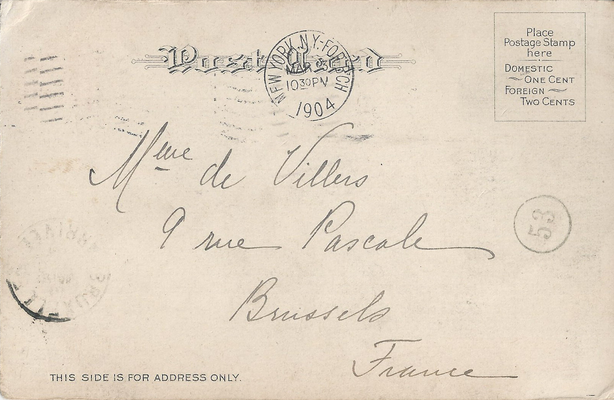 Post Card
NEW YORK, N.Y. FOR. BCH
MAR
10 30 PM
1904
Place
Postage Stamp
here
DOMESTIC
ONE CENT
FOREIGN
TWO CENTS
Mme de Villers
9 rue Pascale
Brussels
France
53
BRUXELLES
THIS SIDE IS FOR ADDRESS ONLY.